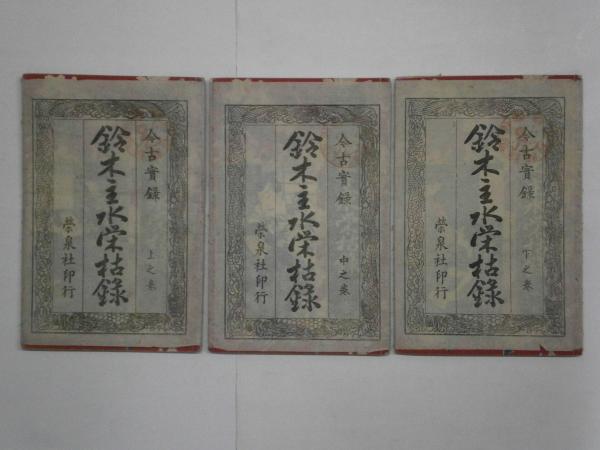 今古實録
鈴木主水栄枯録
上之巻
榮泉社印行
今古實録
鈴木主水栄枯録
中之巻
榮泉社印行
今古實録
鈴木主水栄枯録
下之巻
榮泉社印行